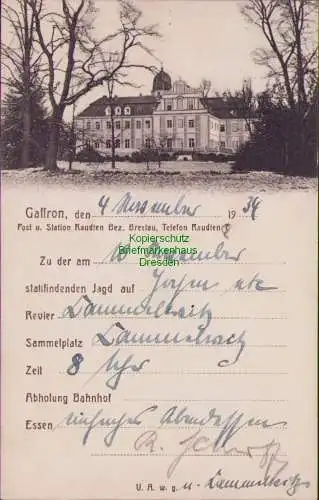 Gaffron, den 4 November 1934
Post u. Station Raudten Bez. Breslau, Telefon Raudten
Kopierschutz
Briefmarkenhaus
Dresden
Zu der am 10 November
stattfindenden Jagd auf
Revier Lammelwitz
Sammelplatz
Zeit 8 Uhr
Abholung Bahnhof
Essen einfaches Abendessen
U. A. w. g. n. Lammelwitz